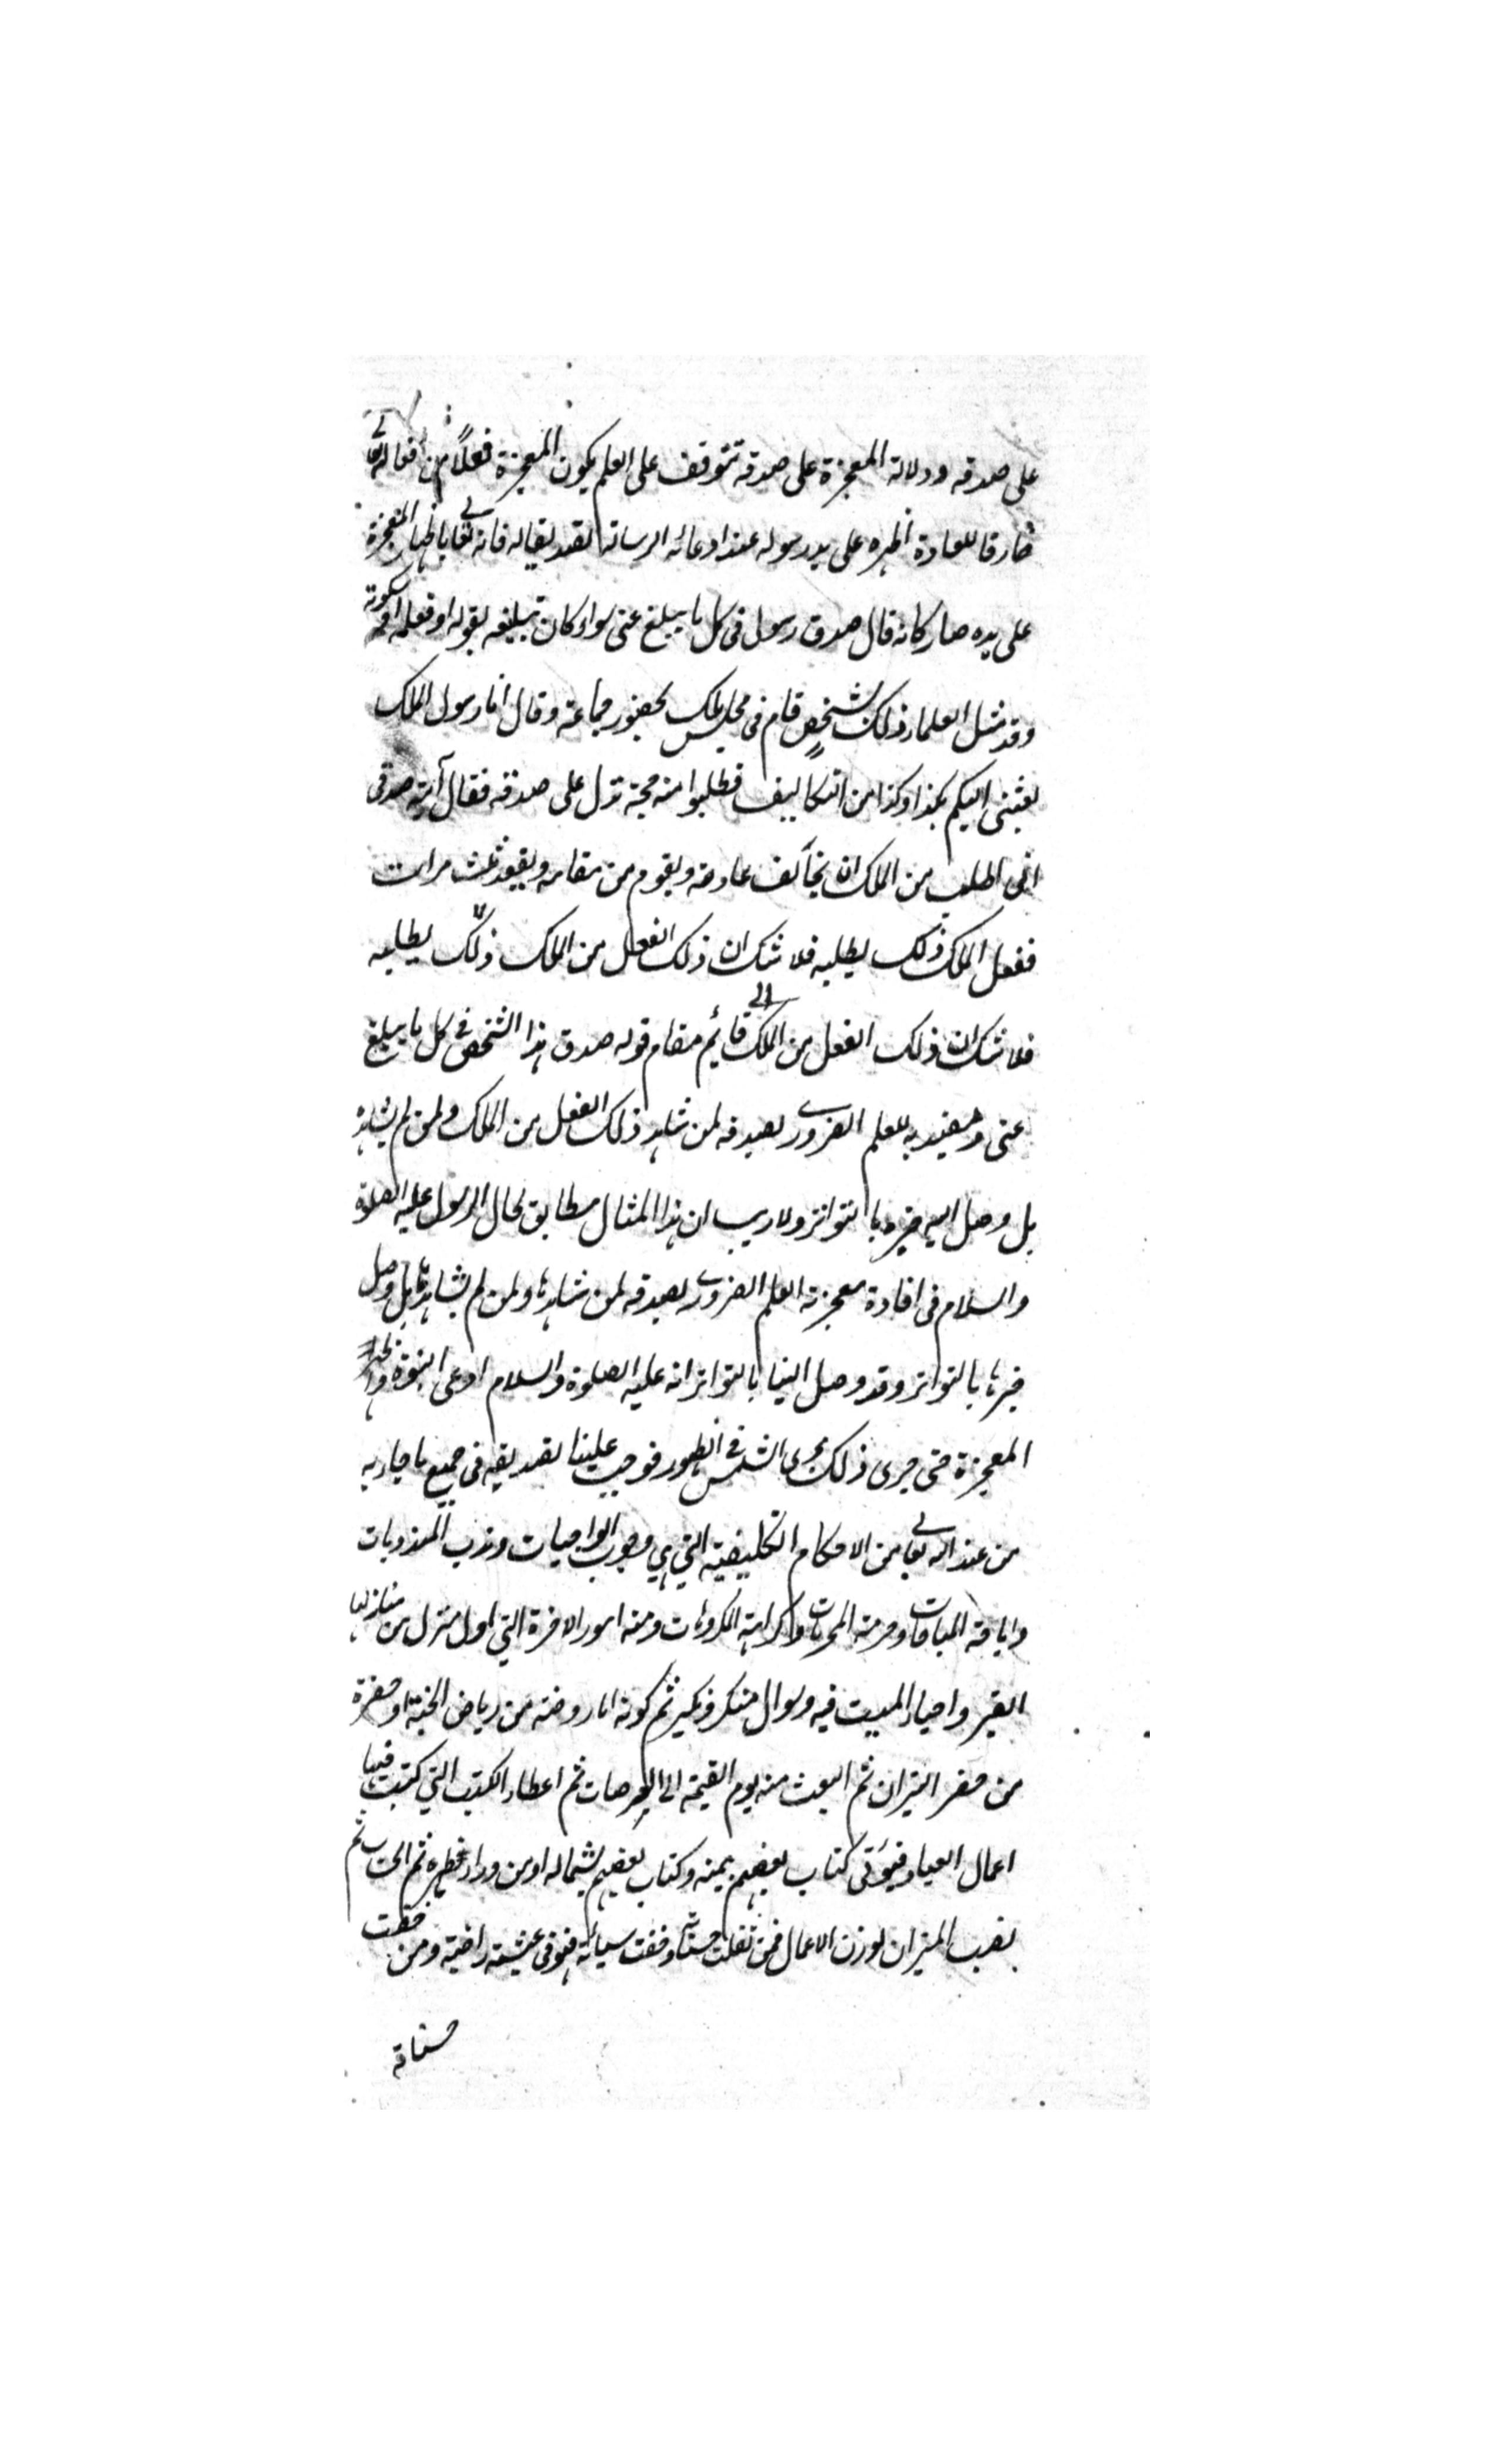 على صدقه ودلالة المعجزة على صدقه تتوقف على العلم بكون المعجزة فعلاً من أفعاله تعالى
خارقا للعادة اظهره على يد رسوله عند ادعائه الرسالة تصديقا له فانه تعالى باظهار المعجزة
على يده صار كانه قال صدق رسولى فى كل ما يبلغ عنى سواء كان تبليغه بقوله او فعله او سكوته
وقد مثل العلماء ذلك بشخص قام فى مجلس ملك بحضور جماعة وقال انا رسول الملك
بعثنى اليكم بكذا وكذا من التكاليف فطلبوا منه حجة تدل على صدقه فقال آية صدقى
انى اطلب من الملك ان يخالف عادته ويقوم من مقامه ويقعد ثلث مرات
ففعل الملك ذلك بطلبه فلا شك ان ذلك الفعل من الملك ذلك بطلبه
فلا شك ان ذلك الفعل من الملك قائم مقام قوله صدق هذا الشخص فى كل ما يبلغ
عنى ومفيد به للعلم الضرورى بصدقه لمن شاهد ذلك الفعل من الملك ولمن لم يشاهد
بل وصل اليه خبره بالتواتر ولا ريب ان هذا المثال مطابق لحال الرسول عليه الصلوة
والسلام فى افادة معجزته العلم الضرورى بصدقه لمن شاهدها ولمن لم يشاهدها بل وصل
خبرها بالتواتر وقد وصل الينا بالتواتر انه عليه الصلوة والسلام ادعى النبوة واظهر
المعجزة حتى جرى ذلك مجرى الشمس فى الظهور فوجب علينا تصديقه فى جميع ما جاء به
من عند الله تعالى من الاحكام التكليفية التي هي وجوب الواجبات وندب المندوبات
واباحة المباحات وحرمة المحرمات وكراهة المكروهات ومنه امور الاخرة التي اول منزل من منازلها
القبر واحياء الميت فيه وسوال منكر ونكير ثم كونه اما روضة من رياض الجنة او حفرة
من حفر النيران ثم البعث منه يوم القيمة الى العرصات ثم اعطاء الكتب التي كتبت فيها
اعمال العباد فيؤتى كتاب بعضهم بيمينه وكتاب بعضهم بشماله او من وراء ظهره ثم الحساب ثم
نصب الميزان لوزن الاعمال فمن ثقلت حسناته وخفت سيأته فهو فى عيشة راضية ومن خفت
حسناته